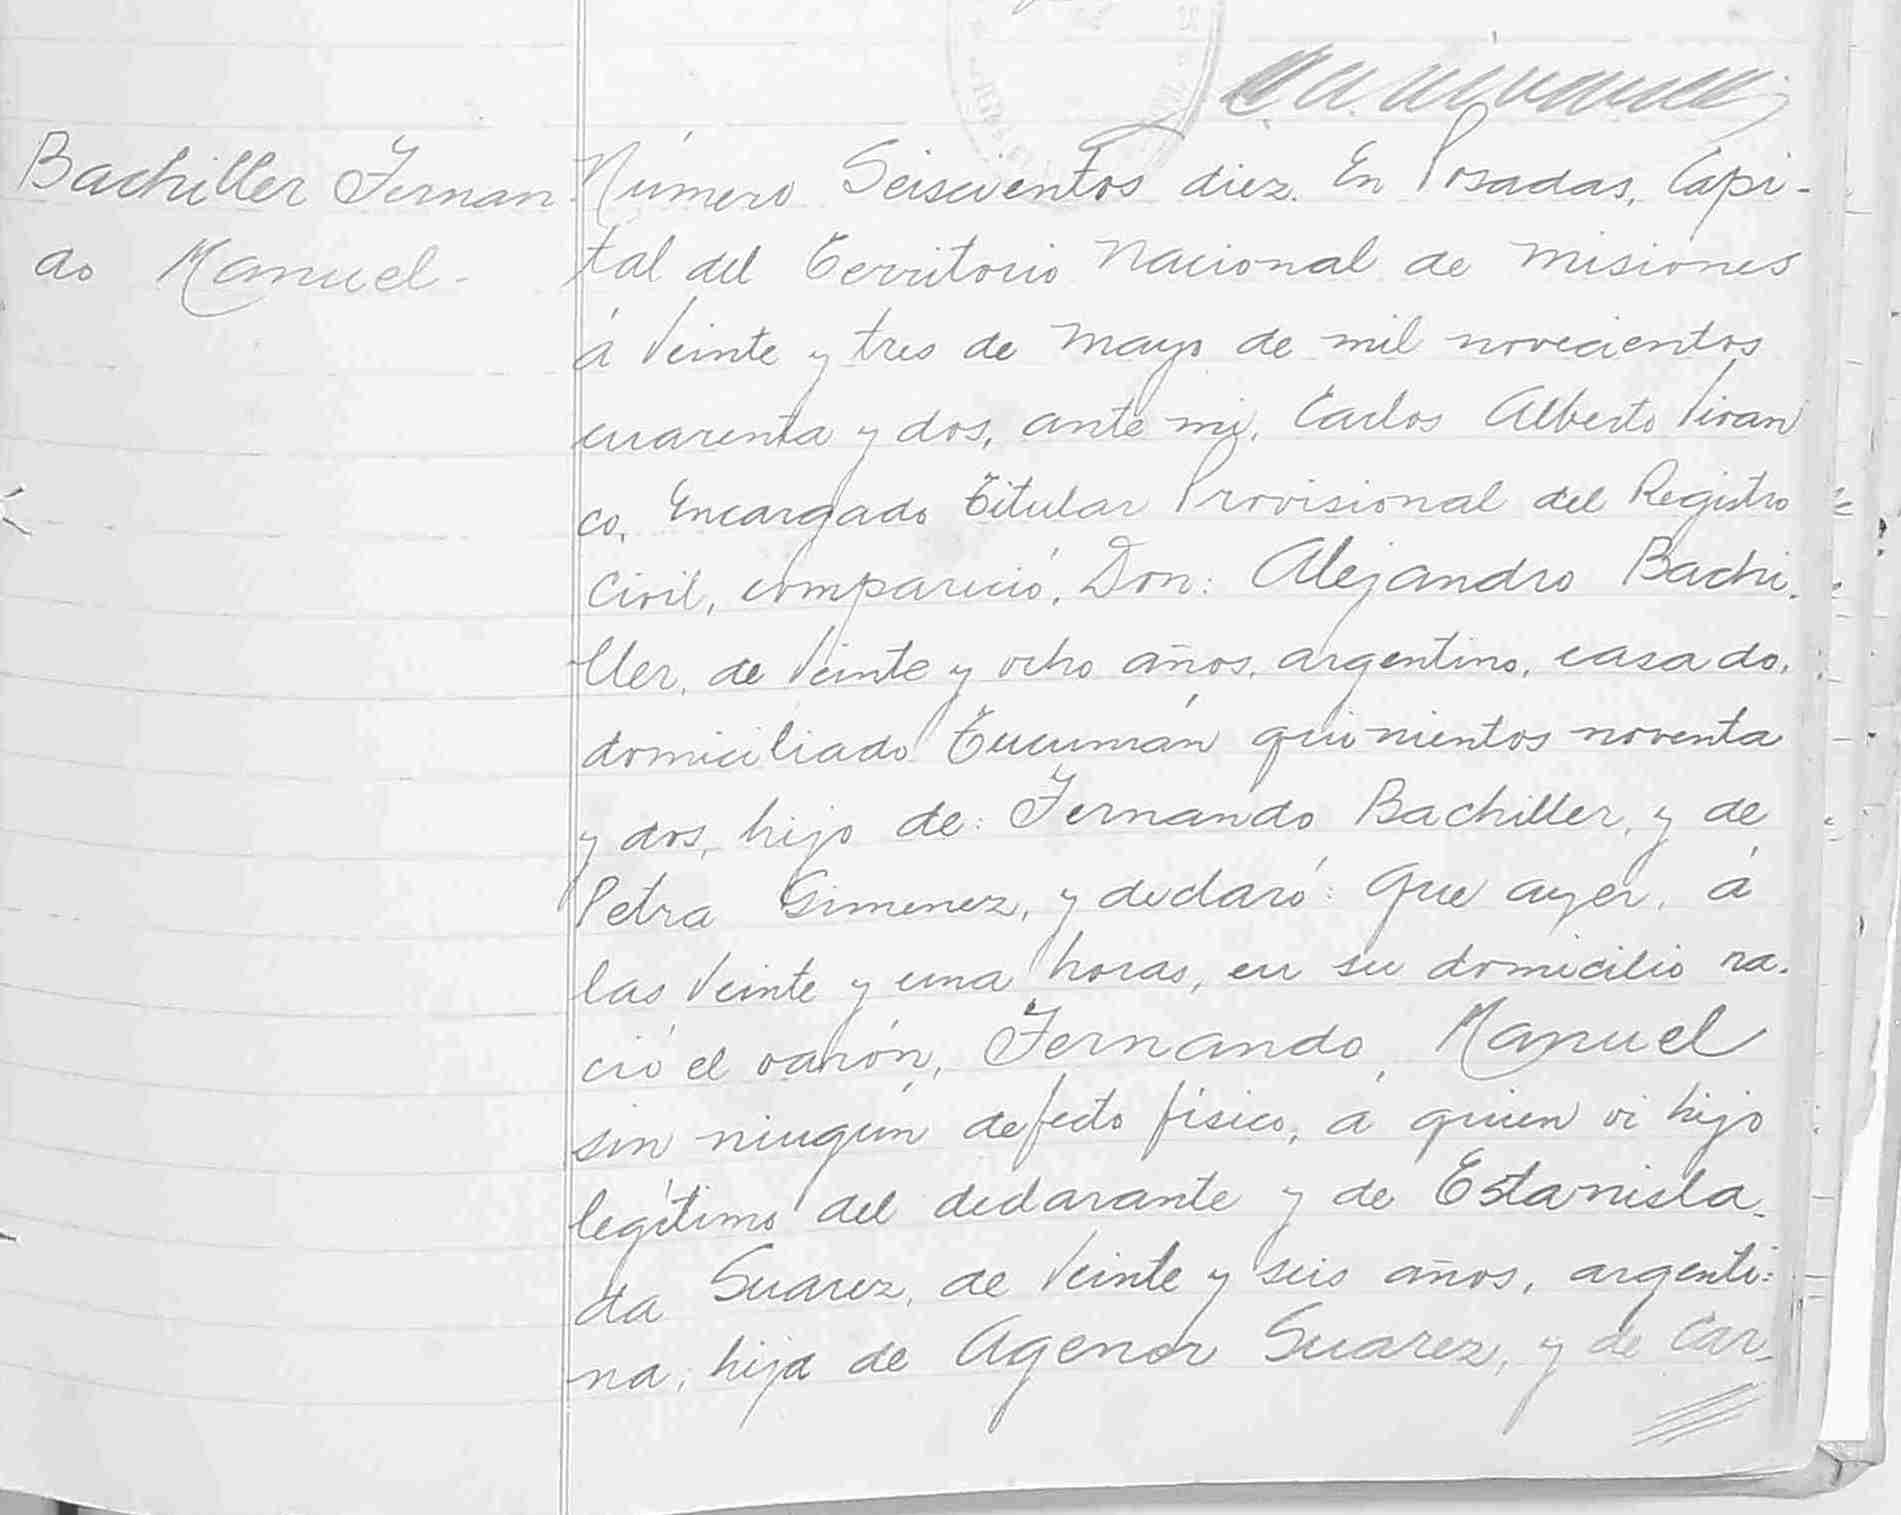 Bachiller Fernan
do Manuel-
Número Seiscientos diez. En Posadas, Capi-
tal del Territorio Nacional de Misiones
á Veinte y tres de Mayo de mil novecientos
cuarenta y dos, ante mi, Carlos Alberto Viran
co, Encargado Titular Provisional del Registro
Civil, compareció, Don: Alejandro Bachi-
ller, de Veinte y ocho años, argentino, casado,
domiciliado Tucumán quinientos noventa
y dos, hijo de: Fernando Bachiller, y de
Petra Gimenez, y declaró: Que ayer, á
las Veinte y una horas, en su domicilio na-
ció el varón, Fernando, Manuel
sin ningún defecto físico, á quien vi hijo
legítimo del declarante y de Estanisla-
da Suarez, de Veinte y seis años, argenti-
na, hija de Agenor Suarez, y de Car-